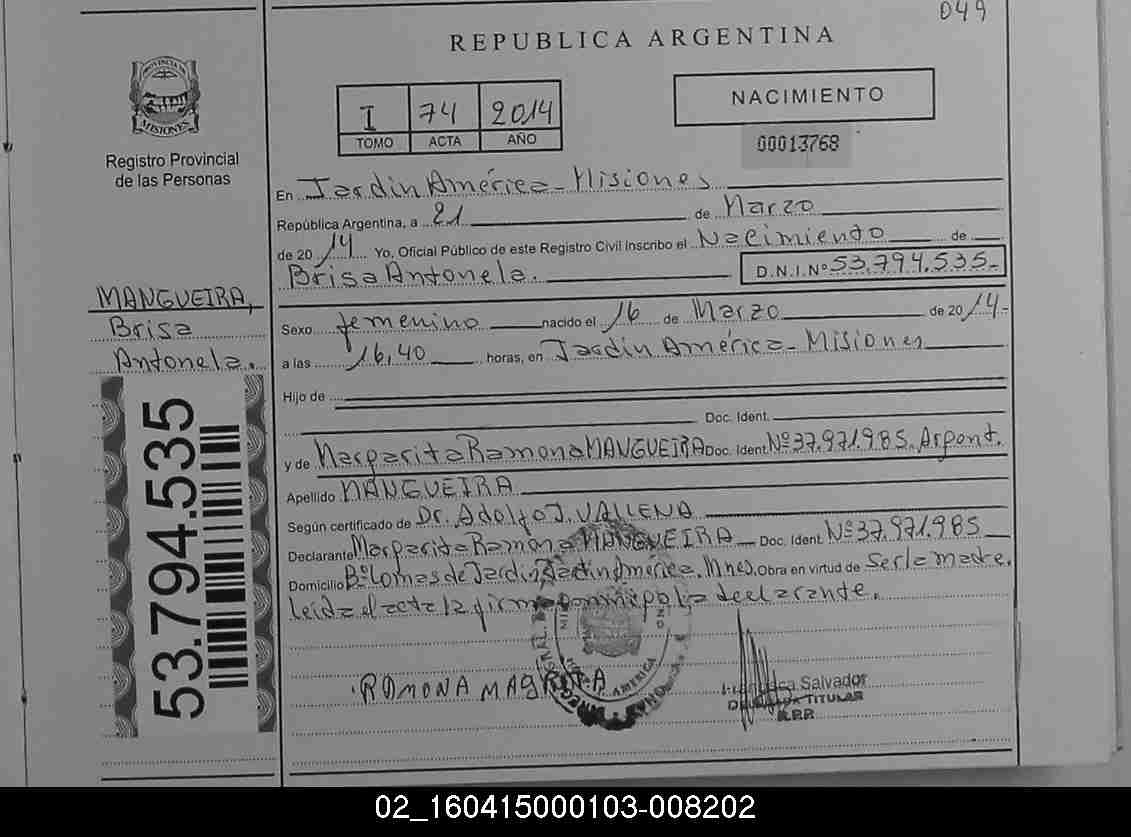 049
REPUBLICA ARGENTINA
PROVINCIA DE
MISIONES
Registro Provincial
de las Personas
I 74 2014
TOMO ACTA AÑO
NACIMIENTO
00013768
En Jardín América - Misiones
República Argentina, a 21 de Marzo
de 2014 Yo, Oficial Público de este Registro Civil Inscribo el Nacimiento de
Brisa Antonela. D.N.I.Nº 53.794.535-
MANGUEIRA,
Brisa
Antonela.
Sexo femenino nacido el 16 de Marzo de 2014-
a las 16,40 horas, en Jardín América - Misiones
Hijo de
Doc. Ident.
y de Margarita Ramona MANGUEIRA Doc. Ident. Nº 37.971.985. Argent.
Apellido MANGUEIRA
Según certificado de Dr. Adolfo J. VALLENA
Declarante Margarita Ramona MANGUEIRA Doc. Ident. Nº 37.971.985
Domicilio Bº Lomas de Jardín, Jardín América, Mnes. Obra en virtud de Ser la madre.
Leída el acta la firma conmigo la declarante.
53.794.535
ROMONA MAGRITA
AMERICA
Salvador
TITULAR
R.P.P.
02_160415000103-008202